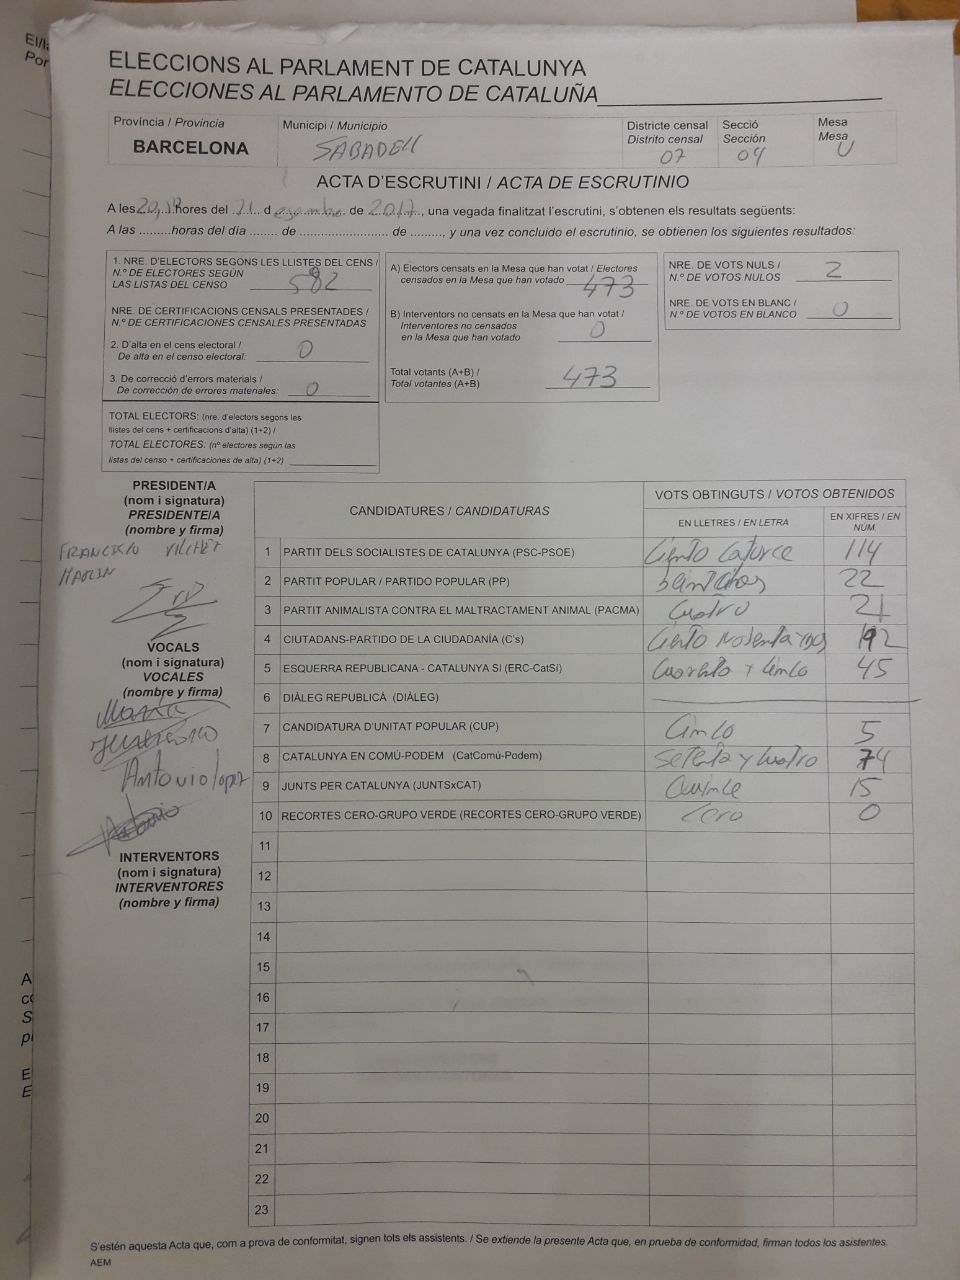 El/la
Por
ELECCIONS AL PARLAMENT DE CATALUNYA
ELECCIONES AL PARLAMENTO DE CATALUÑA
Província / Provincia
BARCELONA
Municipi / Municipio
SABADELL
Districte censal
Distrito censal
07
Secció
Sección
04
Mesa
Mesa
U
ACTA D'ESCRUTINI / ACTA DE ESCRUTINIO
A les ... hores del 21 desembre de 2017, una vegada finalitzat l'escrutini, s'obtenen els resultats següents:
A las .........horas del día ........ de ......................... de ........., y una vez concluido el escrutinio, se obtienen los siguientes resultados:
1. NRE. D'ELECTORS SEGONS LES LLISTES DEL CENS /
N.º DE ELECTORES SEGÚN
LAS LISTAS DEL CENSO 582
NRE. DE CERTIFICACIONS CENSALS PRESENTADES /
N.º DE CERTIFICACIONES CENSALES PRESENTADAS
2. D'alta en el cens electoral /
De alta en el censo electoral: 0
3. De correcció d'errors materials /
De corrección de errores materiales: 0
TOTAL ELECTORS: (nre. d'electors segons les
llistes del cens + certificacions d'alta) (1+2) /
TOTAL ELECTORES: (nº electores según las
listas del censo + certificaciones de alta) (1+2)
A) Electors censats en la Mesa que han votat / Electores
censados en la Mesa que han votado 473
B) Interventors no censats en la Mesa que han votat /
Interventores no censados
en la Mesa que han votado 0
Total votants (A+B) /
Total votantes (A+B) 473
NRE. DE VOTS NULS /
N.º DE VOTOS NULOS 2
NRE. DE VOTS EN BLANC /
N.º DE VOTOS EN BLANCO 0
PRESIDENT/A
(nom i signatura)
PRESIDENTE/A
(nombre y firma)
FRANCISCO VILCHEZ
MARIN
VOCALS
(nom i signatura)
VOCALES
(nombre y firma)
Antonio lopez
INTERVENTORS
(nom i signatura)
INTERVENTORES
(nombre y firma)
CANDIDATURES / CANDIDATURAS
VOTS OBTINGUTS / VOTOS OBTENIDOS
EN LLETRES / EN LETRA
EN XIFRES / EN
NÚM.
1 PARTIT DELS SOCIALISTES DE CATALUNYA (PSC-PSOE) Ciento Catorce 114
2 PARTIT POPULAR / PARTIDO POPULAR (PP) 22
3 PARTIT ANIMALISTA CONTRA EL MALTRACTAMENT ANIMAL (PACMA) Cuatro
4 CIUTADANS-PARTIDO DE LA CIUDADANÍA (C's) Ciento Noventa y Dos 192
5 ESQUERRA REPUBLICANA - CATALUNYA SI (ERC-CatSí) Cuarenta y Cinco 45
6 DIÀLEG REPUBLICÀ (DIÀLEG)
7 CANDIDATURA D'UNITAT POPULAR (CUP) Cinco 5
8 CATALUNYA EN COMÚ-PODEM (CatComú-Podem) Setenta y Cuatro 74
9 JUNTS PER CATALUNYA (JUNTSxCAT) Quince 15
10 RECORTES CERO-GRUPO VERDE (RECORTES CERO-GRUPO VERDE) Cero 0
11
12
13
14
15
16
17
18
19
20
21
22
23
S'estén aquesta Acta que, com a prova de conformitat, signen tots els assistents. / Se extiende la presente Acta que, en prueba de conformidad, firman todos los asistentes.
AEM